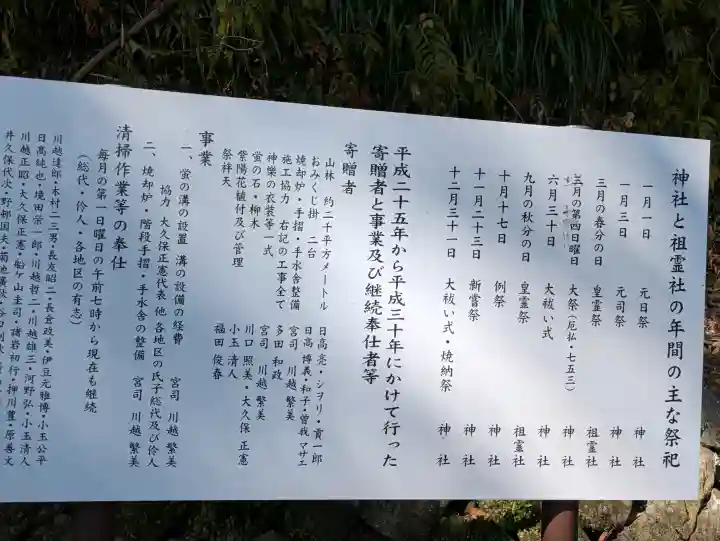 神社と祖霊社の年間の主な祭祀
一月一日 元日祭 神社
一月三日 元司祭 神社
三月の春分の日 皇霊祭 祖霊社
三月の第四日曜日 大祭(厄払・七五三) 神社
六月三十日 大祓い式 神社
九月の秋分の日 皇霊祭 祖霊社
十月十七日 例祭 神社
十一月二十三日 新嘗祭 神社
十二月三十一日 大祓い式・焼納祭 神社
平成二十五年から平成三十年にかけて行った
寄贈者と事業及び継続奉仕者等
寄贈者
山林 約二千平方メートル 日高亮・シヲリ・貢一郎
おみくじ掛 二台 日高博義・和子・曽我マサエ
焼却炉・手摺・手水舎整備 宮司 川越繁美
施工協力 右記の工事全て 多田和政
神楽の衣装等一式 宮司 川越繁美
蛍の石・柳木 川口照美・大久保正憲
紫陽花植付及び管理 小玉清人
祭袢天 福田俊春
事業
一、蛍の溝の設置 溝の設備の経費 宮司 川越繁美
協力 大久保正憲代表 他 各地区の氏子総代及び伶人
二、焼却炉・階段手摺・手水舎の整備 宮司 川越繁美
清掃作業等の奉仕
毎月の第一日曜日の午前七時から現在も継続
(総代・伶人・各地区の有志)
川越達郎・木村二三男・長友昭二・長倉政美・伊豆元雅博・小玉公平
日高純也・境田栄一郎・川越哲二・川越雄三・河野弘・小玉清人
川越正昭・大久保正憲・船ケ山圭司・諸岩初行・押川豊・原善文
井久保代次・野邨国夫・菊池廣枝・谷口